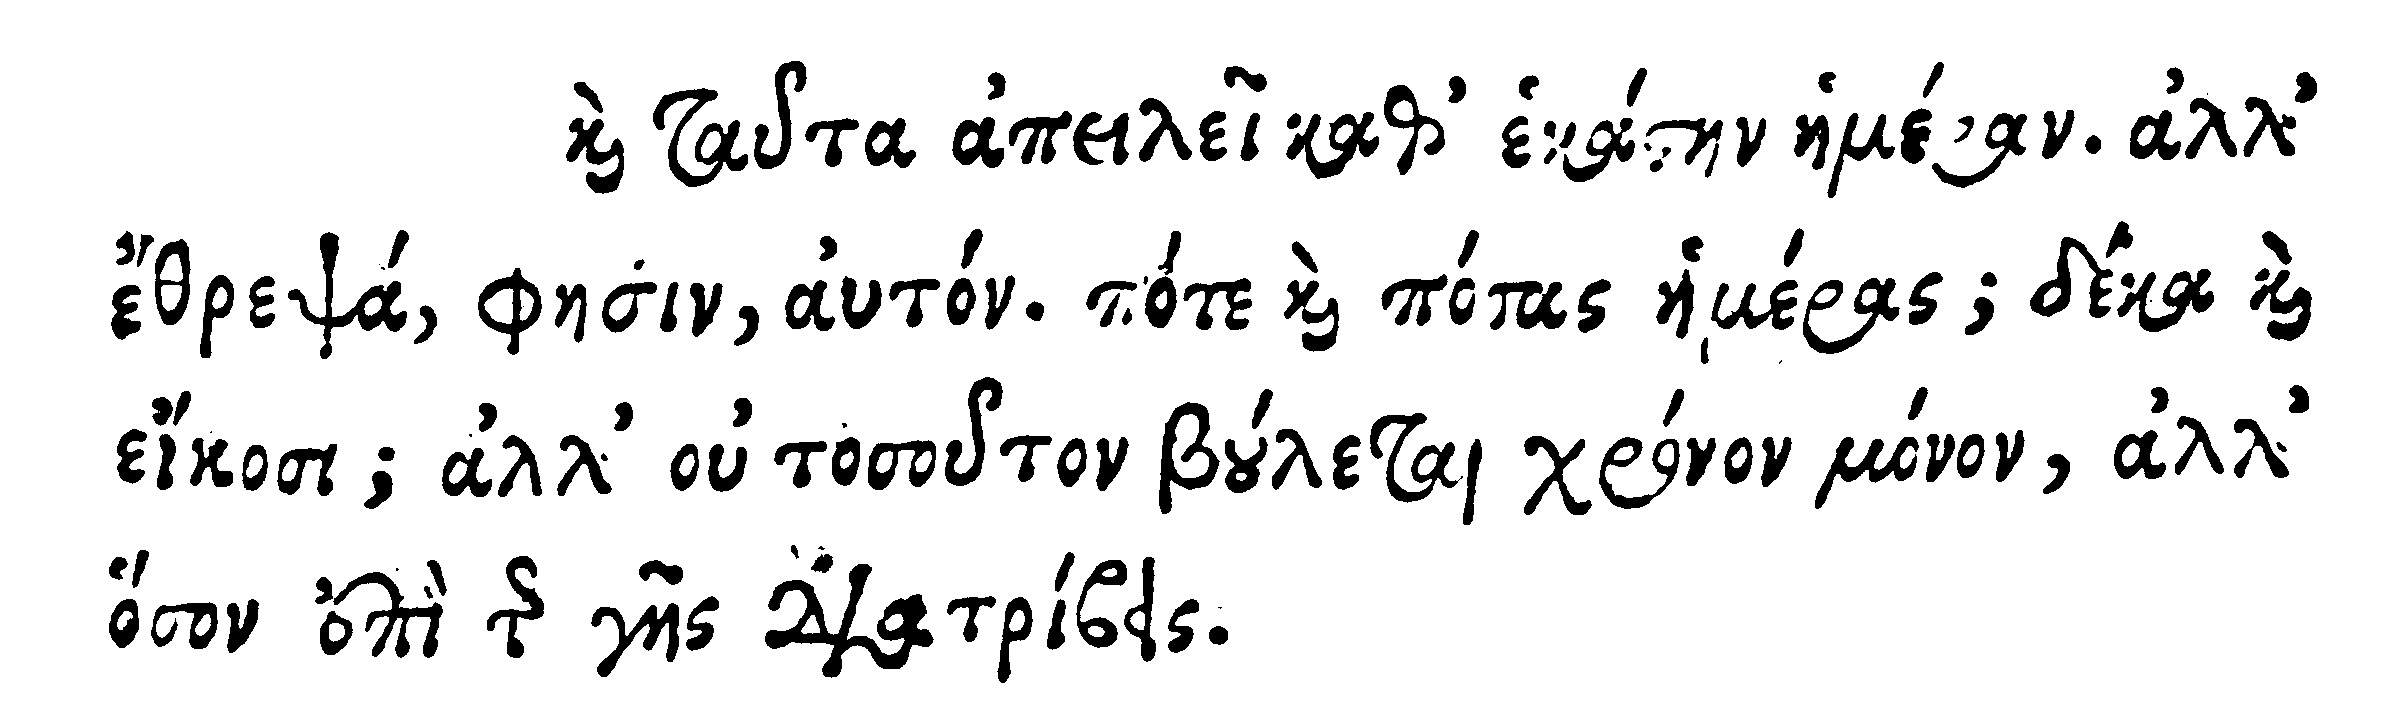 καὶ ταῦτα ἀπειλεῖ καθ' ἑκάστην ἡμέραν. ἀλλ'
ἔθρεψά, φησιν, αὐτόν. πότε καὶ πόσας ἡμέρας; δέκα καὶ
εἴκοσι; ἀλλ' οὐ τοσοῦτον βούλεται χρόνον μόνον, ἀλλ'
ὅσον ἐπὶ τῆς γῆς διατρίβεις.